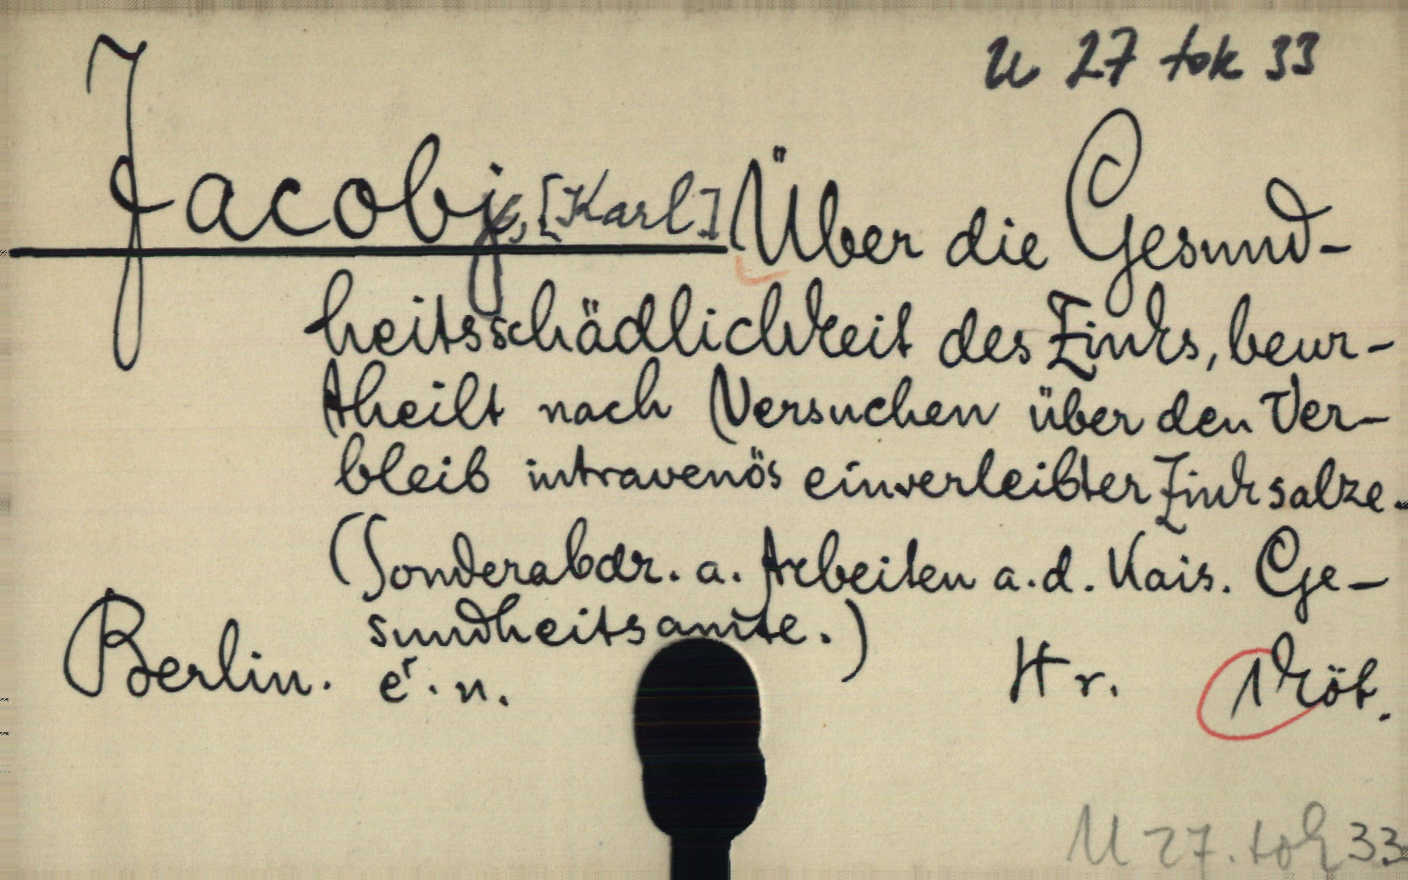 U 27 tok 33
Jacobj, [Karl] Über die Gesund-
heitsschädlichkeit des Zinks, beur-
theilt nach Versuchen über den Ver-
bleib intravenös einverleibter Zinksalze.
(Sonderabdr. a. Arbeiten a. d. Kais. Ge-
sundheitsamte.)
Berlin. er. n. Hr. 1 Köt.
U 27. tok 33